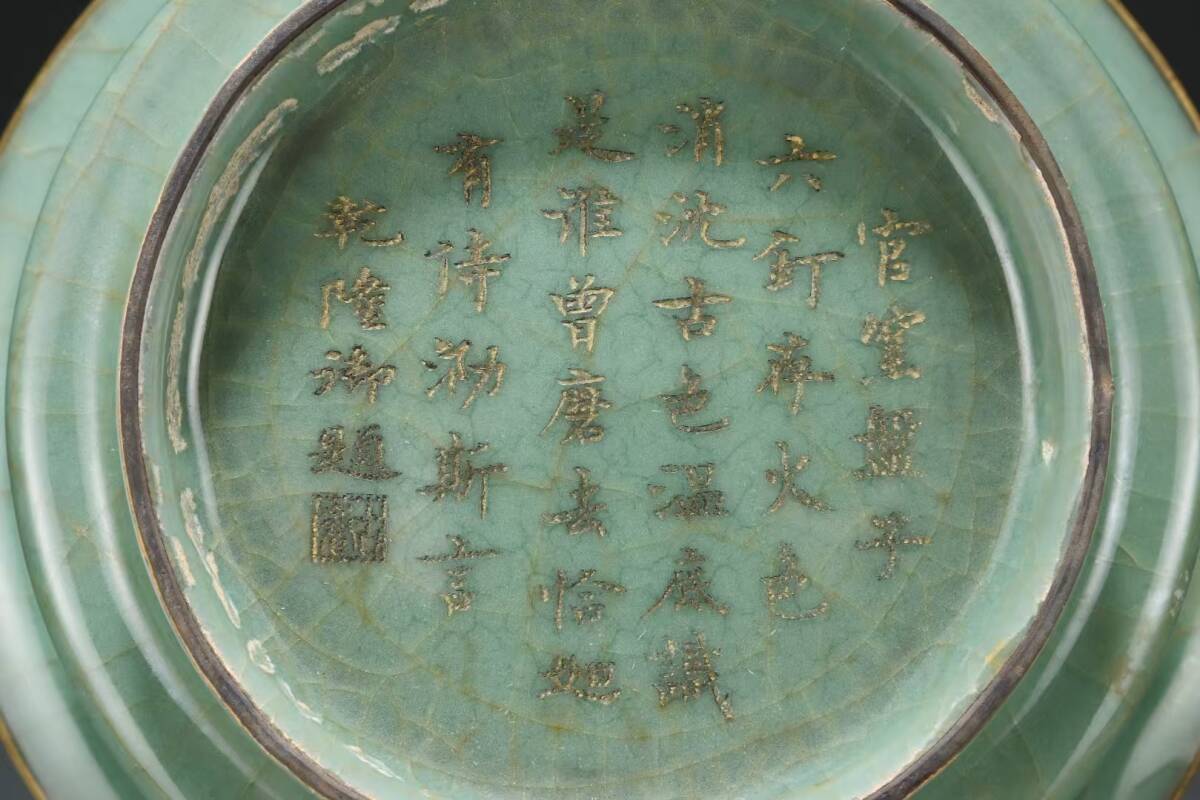 官窰盤子
六釘存火色
消沈古色温底識
是誰曾磨去恰如
有待勒斯言
乾隆御題